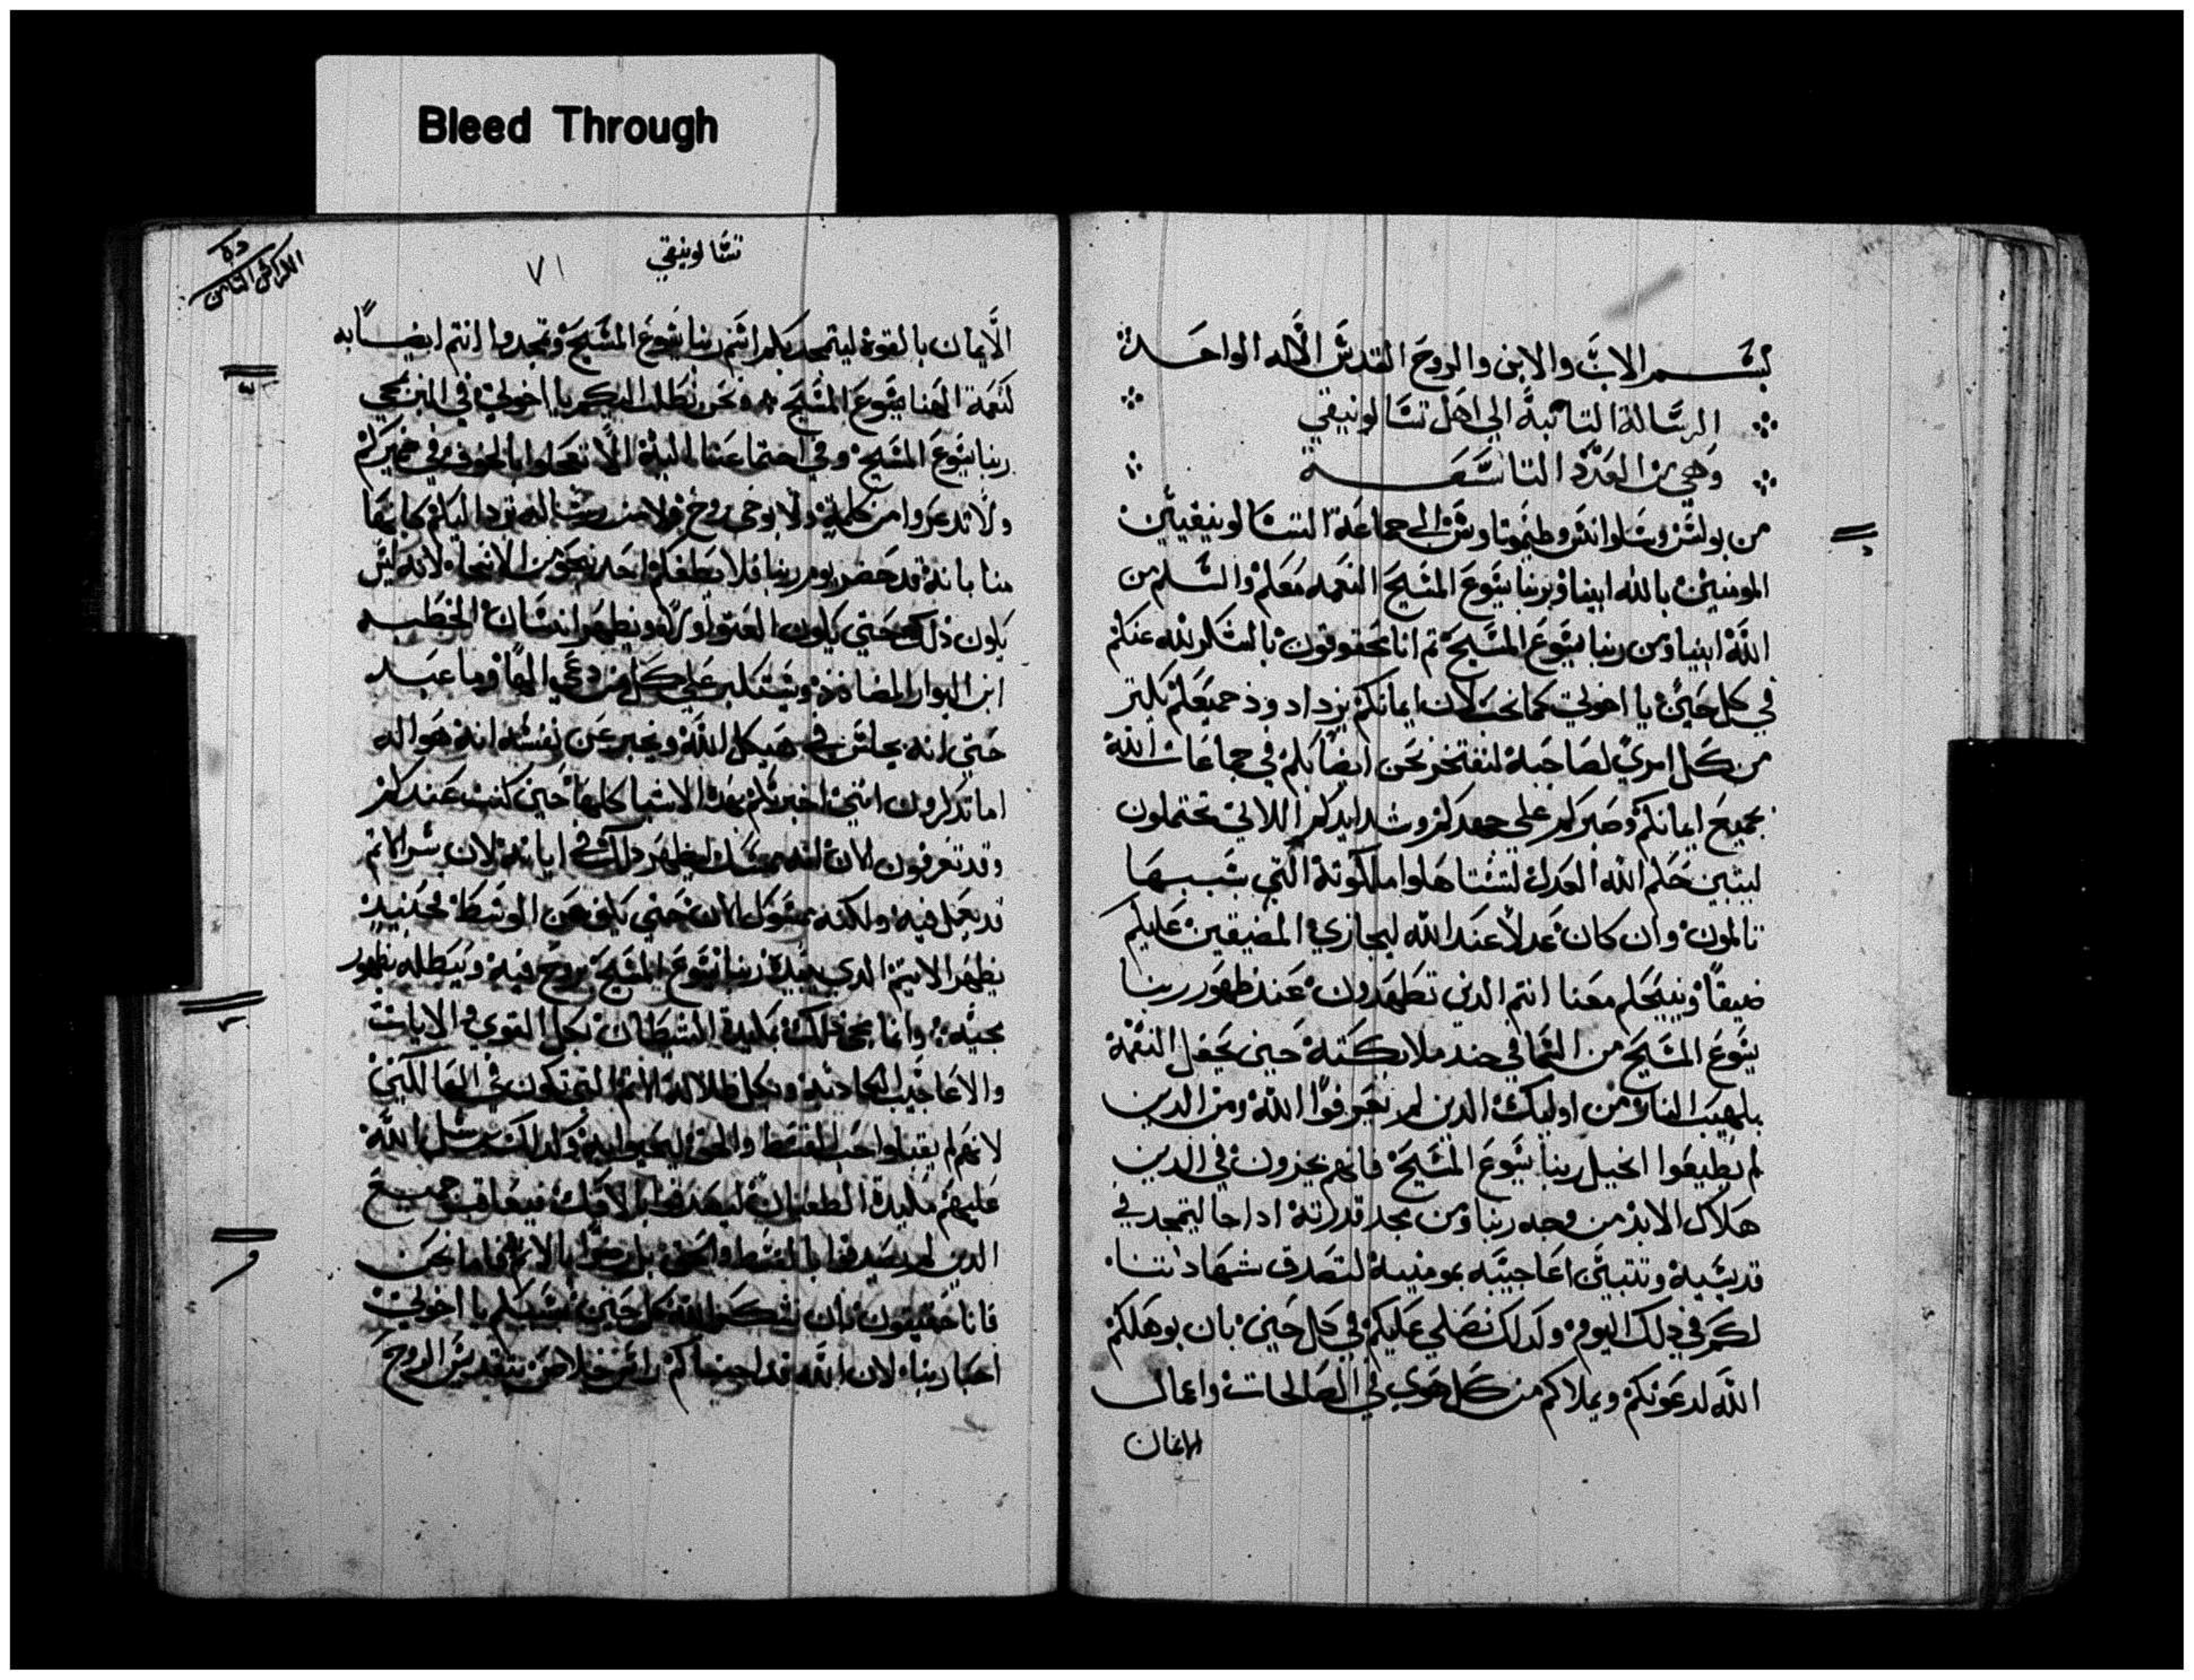 Bleed Through
بسم الاب والابن والروح القدس الاله الواحد
الرسالة التانية الي اهل تسالونيقي
وهي من العدد التاسعة
من بولس وسلوانس وطيموتاوس الي جماعة التسالونيقيين
المومنين بالله ابينا وبربنا يسوع المسيح النعمه معكم والسلم من
الله ابينا ومن ربنا يسوع المسيح تم انا محقوقون بالشكر لله عنكم
في كل حين يا اخوتي كما يجب لان ايمانكم يزداد وود جميعكم يكتر
من كل امري لصاحبة لنفتخر نحن ايضا بكم في جماعات الله
بجميع ايمانكم وصبركم علي جهدكم وشدايدكم اللاتي تحتملون
ليتبين حكم الله العدل لتستاهلوا ملكوتة التي بسببها
تالمون وان كان عدلا عند الله ليجازي المضيقين عليكم
ضيقا وينيحكم معنا انتم الدين تضطهدون عند ظهور ربنا
يسوع المسيح من السما في جند ملايكتة حين يجعل النقمة
بلهيب النار من اوليك الدين لم يعرفوا الله ومن الدين
لم يطيعوا انجيل ربنا يسوع المسيح فانهم يجزون في الدين
هلاك الابد من وجه ربنا ومن مجد قدرتة ادا جا ليتمجد في
قديسية وتتبين اعاجيبه بمومنية لتصدق شهادتنا
لكم في دلك اليوم ولدلك نصلي عليكم في كل حين بان يوهلكم
الله لدعوتكم ويملاكم من كل هوي في الصالحات واعمال
الايمان
تسالونيقي
٧١
الايمان بالقوة ليتمجد بكم اسم ربنا يسوع المسيح وتمجدوا انتم ايضا به
كنعمة الهنا يسوع المسيح ونحن نطلب اليكم يا اخوتي في مجي
ربنا يسوع المسيح وفي اجتماعنا الية الا تعجلوا بالخوف في ضميركم
ولا تدعروا من كلمة ولا بوحي روح ولا من رسالة ترد اليكم كانها
منا بانة قد حضر يوم ربنا فلا يطغكم احد بنحو من الانحا لانه ليس
يكون دلك حتي يكون العتو اولا ويظهر انسان الخطيه
ابن البوار المضادد ويستكبر علي كل من دعي الها وما عبد
حتي انه يجلس في هيكل الله ويخبر عن نفسه انه هو اله
اما تدكرون انني اخبرتكم بهده الاشيا كلها حين كنت عندكم
وقد تعرفون الان انه يمسك ليظهر دلك في ايانه لان سر الاتم
قد يعمل فية ولكنه يمسك الان حتي يكون من الوسط فحينيد
يظهر الاتيم الدي يبيدة ربنا يسوع المسيح بروح فية ويبطله بظهور
مجيه وانما مجي دلك بمكيدة الشيطان بكل القوي والايات
والاعاجيب الكادبة وبكل ظلالة الاتم التي تكون في الهالكين
لانهم لم يقبلوا حب القسط والحق ليحيوا به ولدلك يرسل الله
عليهم مكيدة الطغيان ليصدقوا بالافك فيعاقب جميع
الدين لم يصدقوا بالقسط والحق بل رضوا بالاتم فاما نحن
فانا حقيقون بان نشكر الله كل حين بسببكم يا اخوتي
احبا ربنا لان الله قد اجتباكم راس خلاص بتقديس الروح